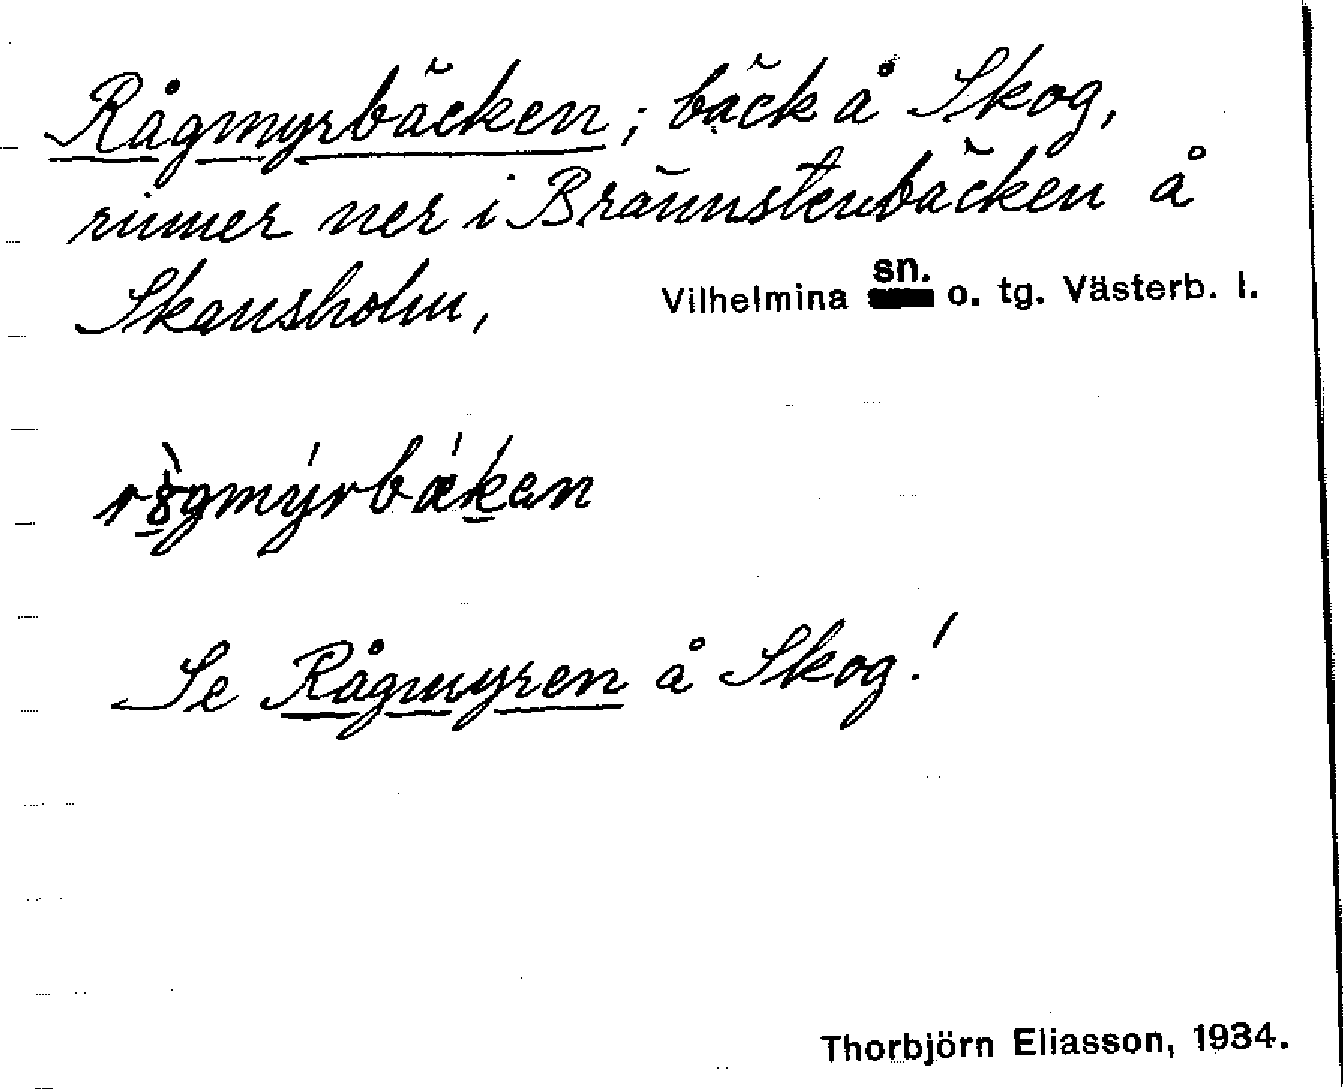 Rågmyrbäcken; bäck å Skog,
rinner ner i Brännstenbäcken å
Skansholm, Vilhelmina sn. o. tg. Västerb. l.
Se Rågmyren å Skog!
Thorbjörn Eliasson, 1934.